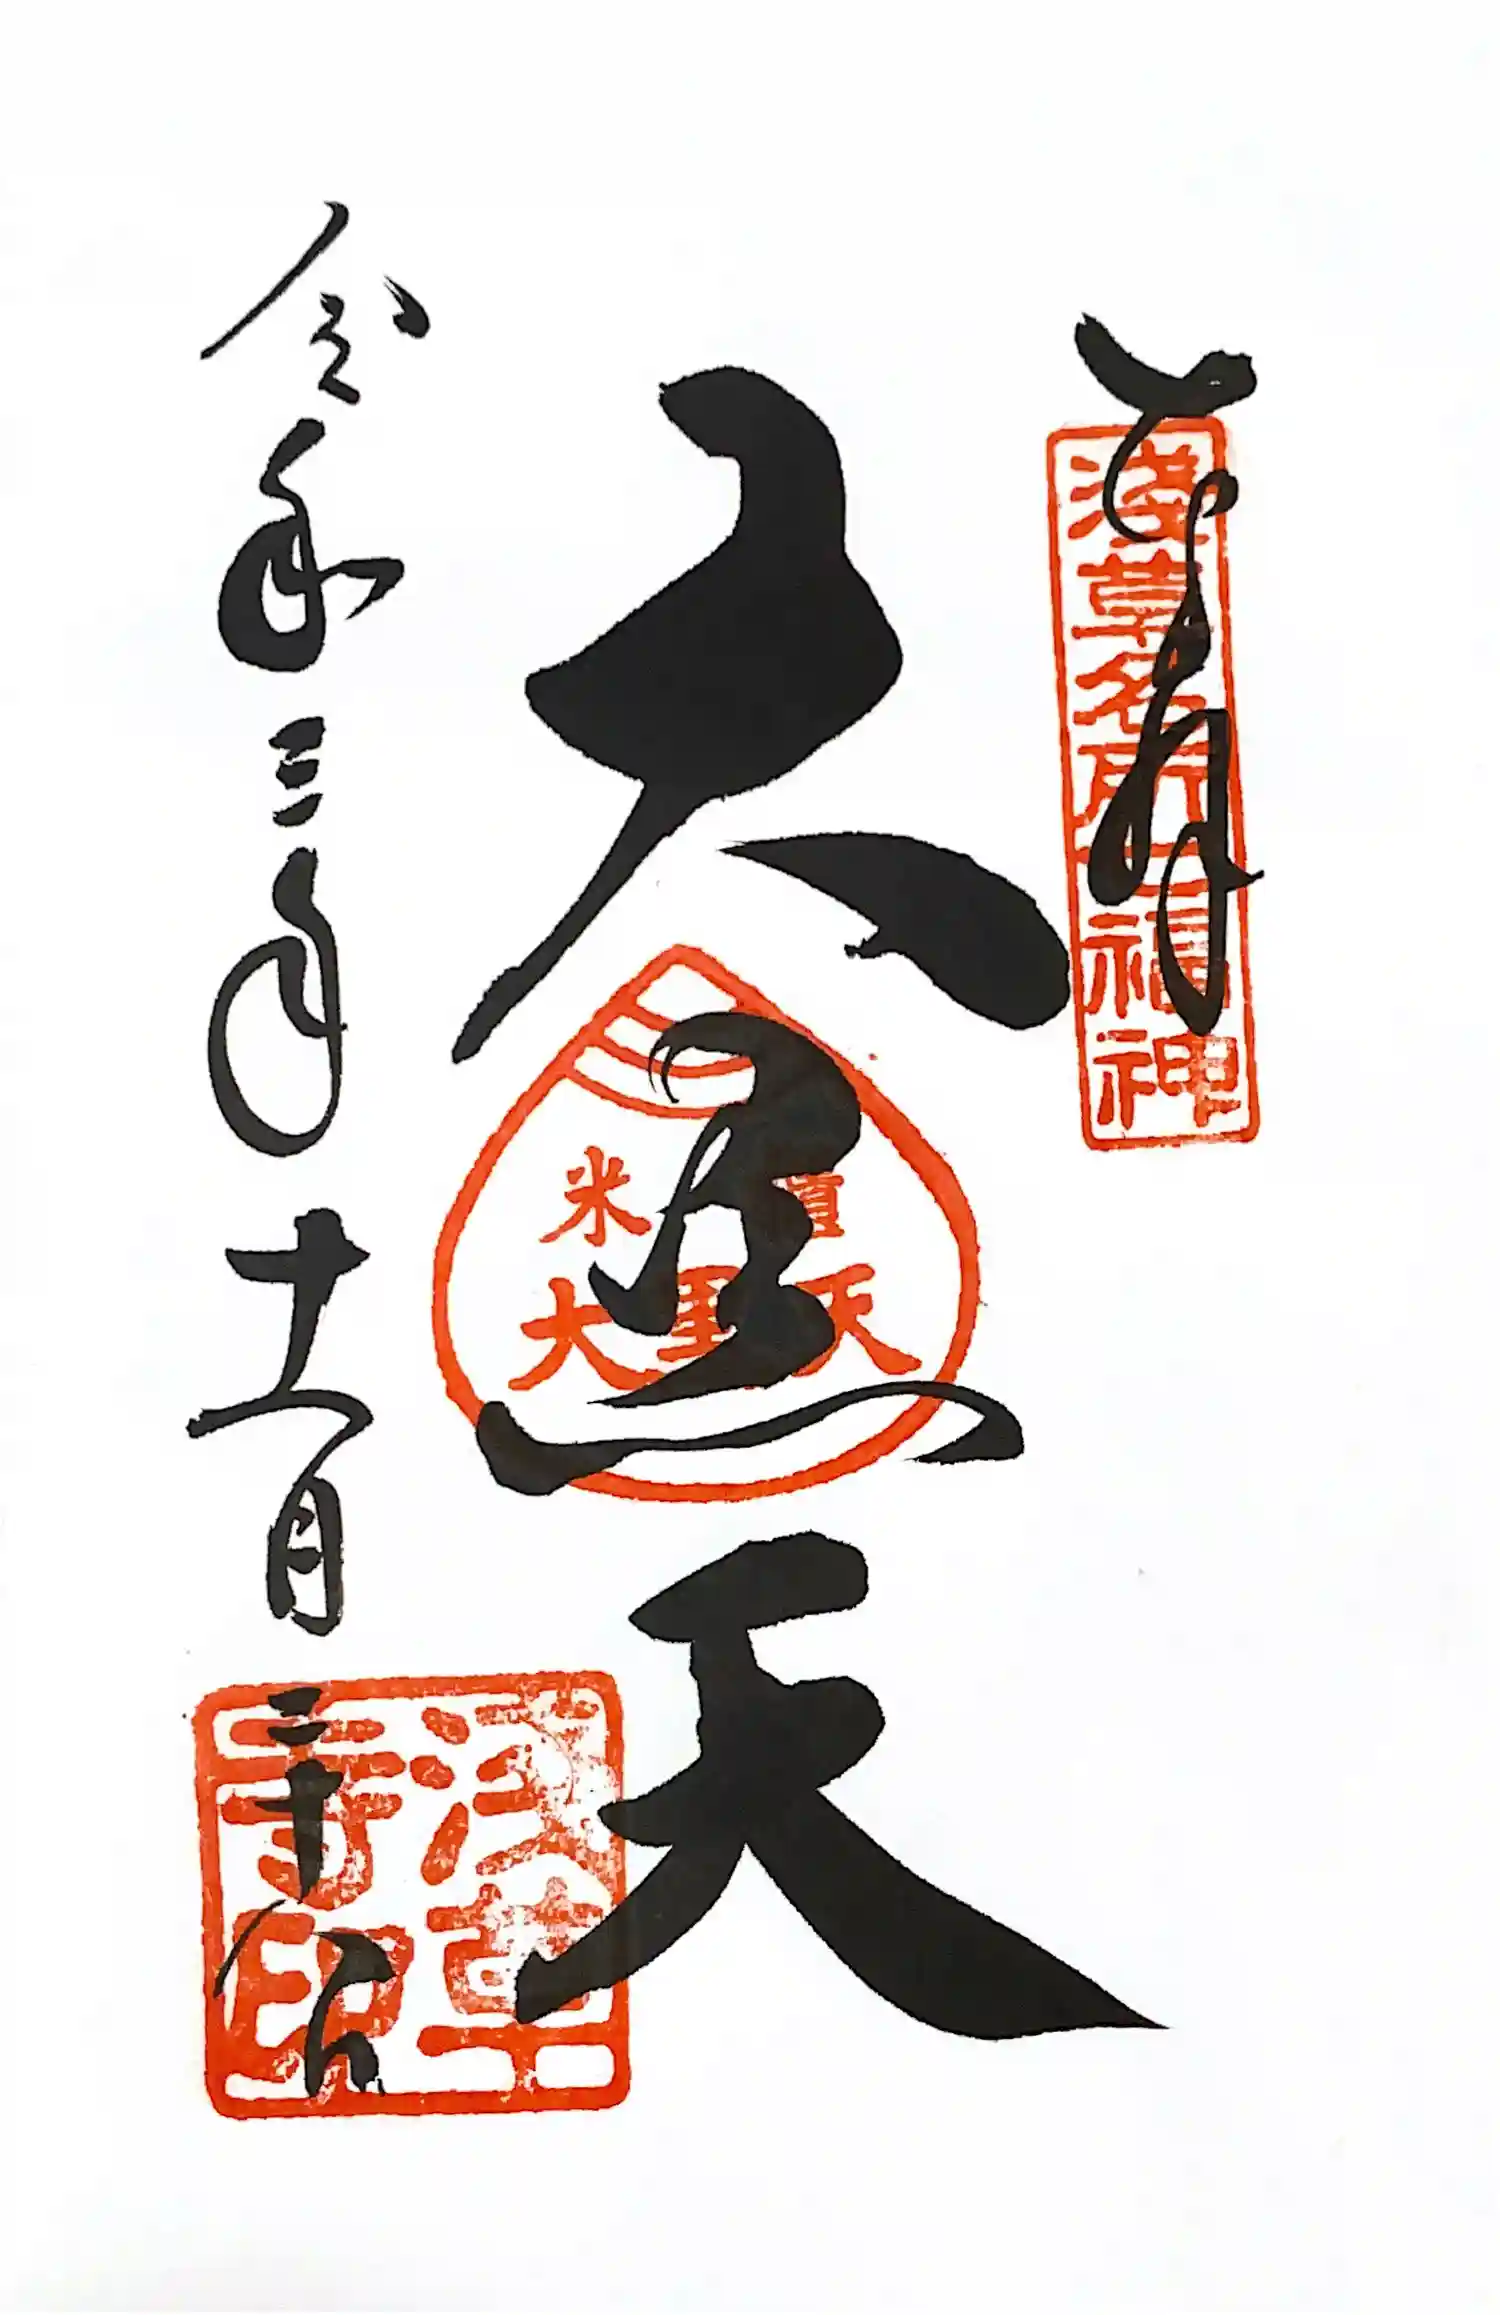 奉拝
淺草名所七福神
大黒天
米櫃
大黒天
令和三年十一月二十八日
浅草寺印